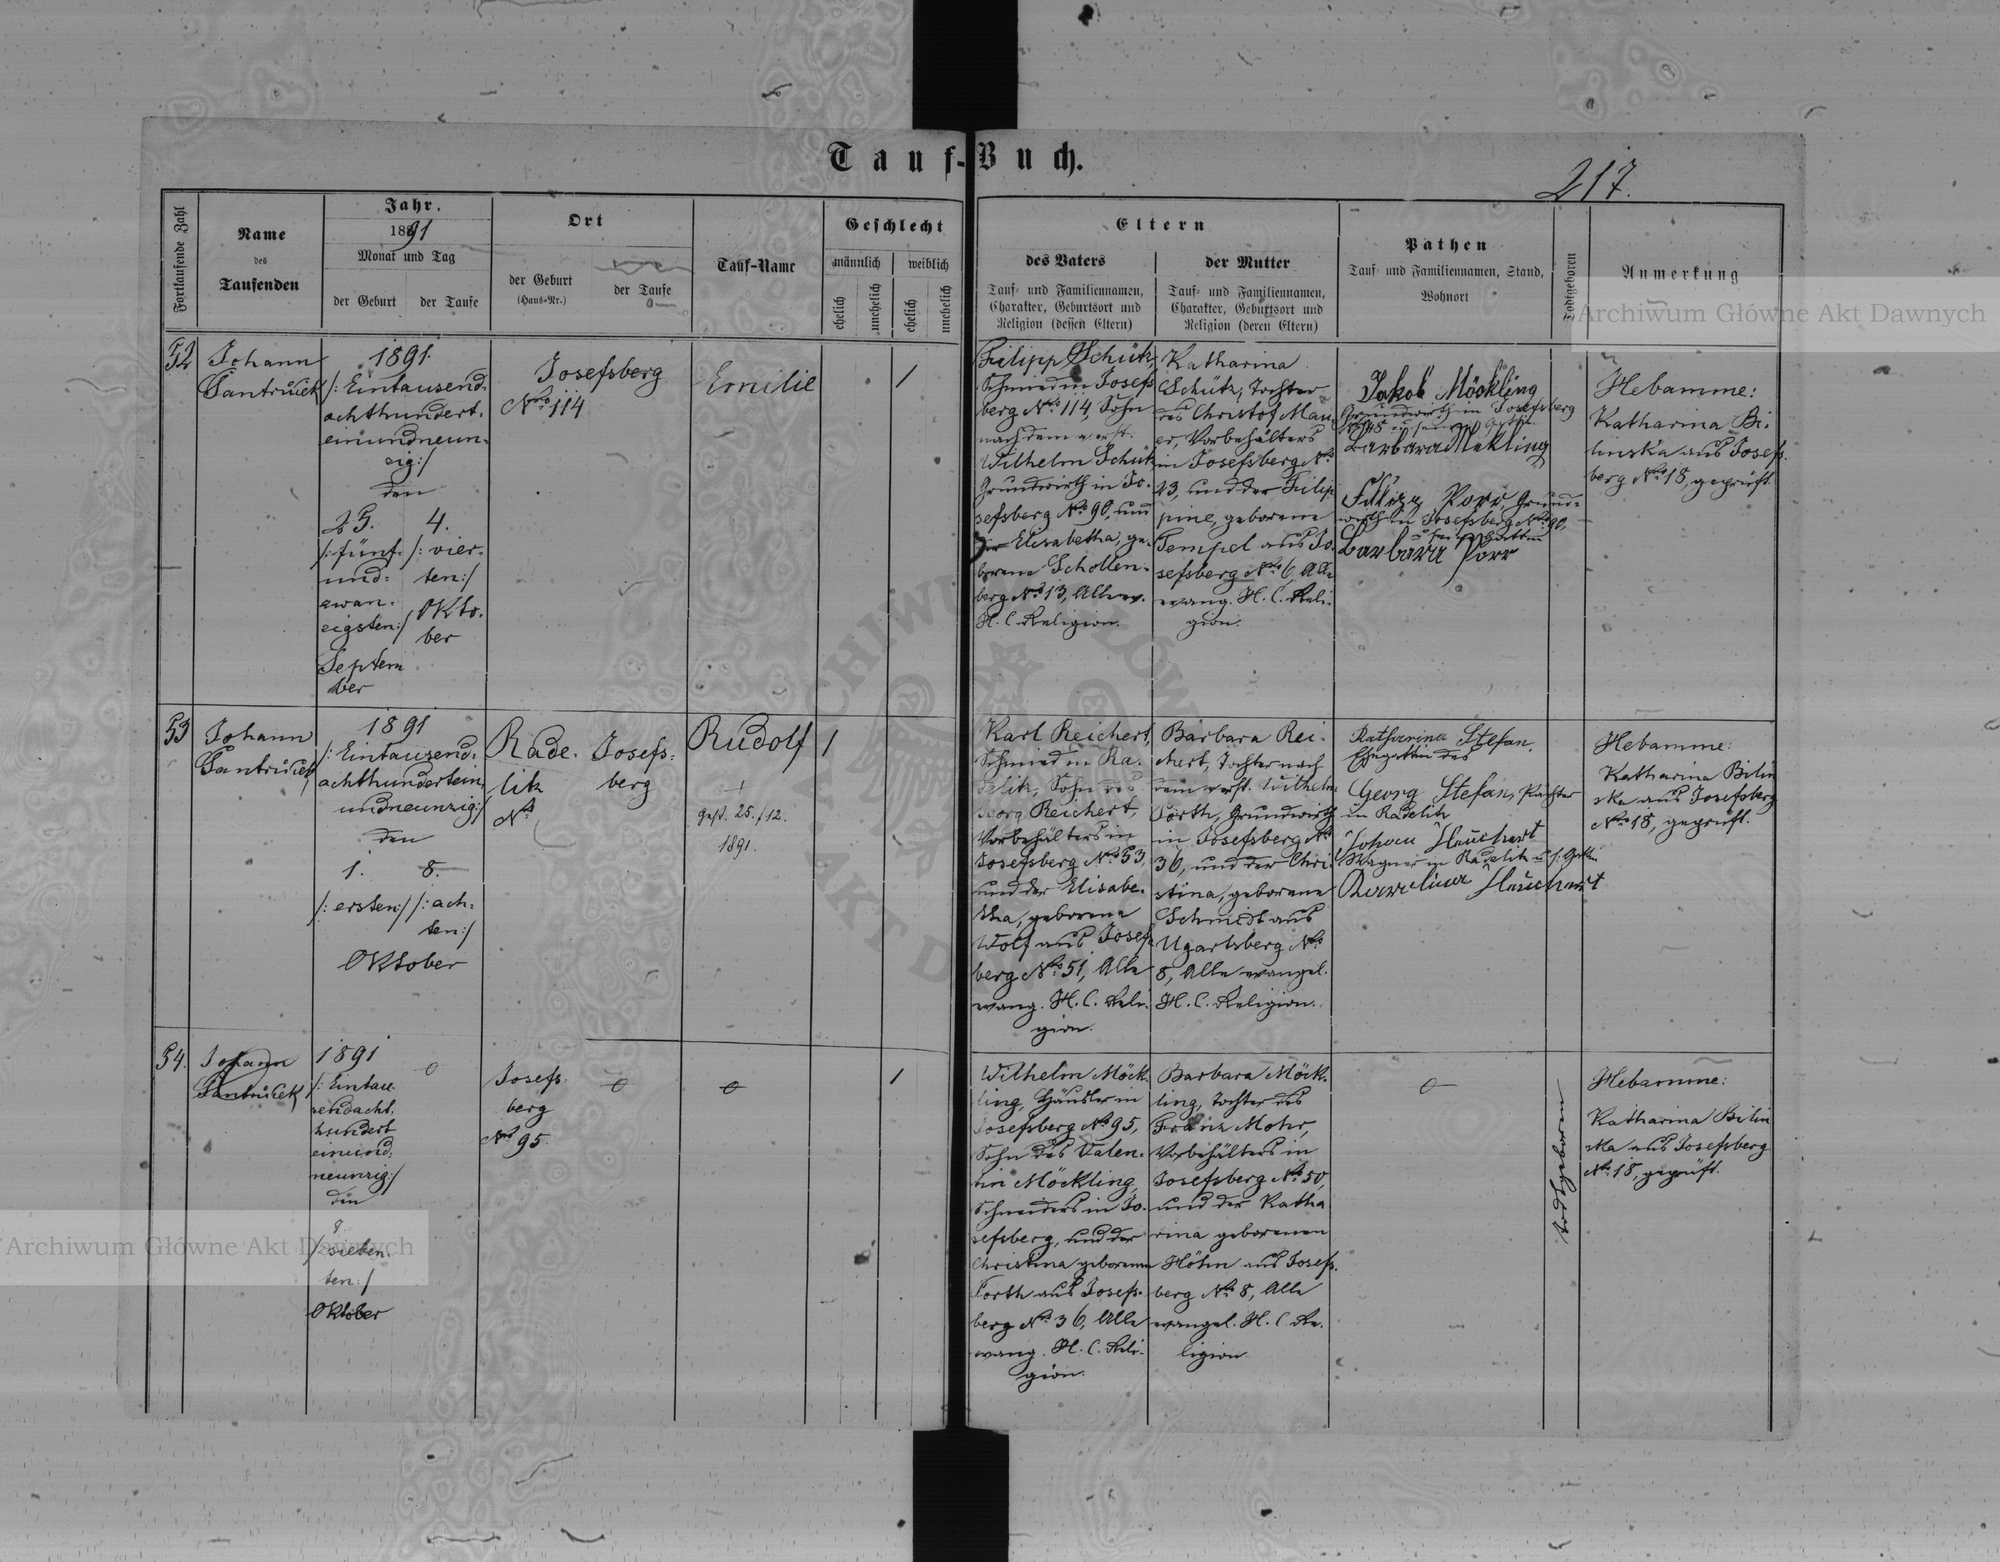 Tauf-Buch.
217.
Fortlaufende Zahl
Name
des
Taufenden
Jahr.
1891
Monat und Tag
der Geburt
der Taufe
Ort
der Geburt
(Haus-Nr.)
der Taufe
Tauf-Name
Geschlecht
männlich
weiblich
ehelich
unehelich
ehelich
unehelich
Eltern
des Vaters
Tauf- und Familiennamen,
Charakter, Geburtsort und
Religion (dessen Eltern)
der Mutter
Tauf- und Familiennamen,
Charakter, Geburtsort und
Religion (deren Eltern)
Pathen
Tauf- und Familiennamen, Stand,
Wohnort
Todtgeboren
Anmerkung
52
Johann
1891.
/: Eintausend-
achthundert-
einundneun-
zig:/
den
25.
/:fünf-
und-
zwan-
zigsten:/
Septem
ber
4.
/: vier-
ten:/
Okto-
ber
Josefsberg
Nro 114
Emilie
1
Filipp Schük,
Schmied in Josefs
berg Nro 114, Sohn
nach dem verst.
Wilhelm Schük
Grundwirth in Jo-
sefsberg No 90, und
der Elisabetha, ge-
borene Schollen-
berg No 13, Alle ev.
H. C. Religion.
Katharina
Schük, Tochter
des Christof Mau-
er, Vorbehälters
in Josefsberg No
43, und der Filip
pine, geborene
Tempel aus Jo-
sefsberg No 6, Alle
evang. H. C. Reli-
gion.
Jakob Möckling
Grundwirth in Josefsberg
Barbara Mekling
Filipp Porr, Grund-
wirth in Josefsberg No 90,
u. seine Gattin
Barbara Porr
Hebamme:
Katharina Bi-
linska aus Josefs-
berg No 18, geprüft.
53
Johann
1891
/: Eintausend-
achthundertein-
undneunzig:/
den
1.
/: ersten:/
8.
/: ach-
ten:/
Oktober
Rade-
litz
No
Josefs-
berg
Rudolf
†
gest. 25./12.
1891.
1
Karl Reichert,
Schmied in Ra-
delitz, Sohn des
Georg Reichert,
Vorbehälters in
Josefsberg No 53,
und der Elisabe-
tha, geborene
Wolf aus Josefs
berg No 51, Alle
evang. H. C. Reli-
gion.
Barbara Rei-
chert, Tochter nach
dem verst. Wilhelm
Porth, Grundwirth
in Josefsberg No
36, und der Chri-
stina, geborene
Schmidt aus
Ugartsberg No
8, Alle evangel.
H. C. Religion.
Katharina Stefan,
Ehegattin des
Georg Stefan, Pächter
in Radelitz
Johann Heuchert
Wagner in Radelitz u. s. Gattin
Karolina Heuchert
Hebamme:
Katharina Bilin
ska aus Josefsberg
No 18, geprüft.
54.
Johann
1891
/: Eintau-
sendacht-
hundert
einund-
neunzig:/
den
/: sieben-
ten:/
Oktober
Josefs-
berg
No 95
1
Wilhelm Möck-
ling, Häusler in
Josefsberg No 95,
Sohn des Valen-
tin Möckling,
Schneiders in Jo-
sefsberg, und der
Christina geborene
Porth aus Josefs-
berg No 36, Alle
evang. H. C. Reli-
gion.
Barbara Möck-
ling, Tochter des
Franz Mohr,
Vorbehälters in
Josefsberg No 50,
und der Katha
rina geborenen
Höhn aus Josefs-
berg No 8, Alle
evangel. H. C. Re-
ligion
todtgeboren
Hebamme:
Katharina Bilin
ska aus Josefsberg
No 18, geprüft.
Archiwum Główne Akt Dawnych
Archiwum Główne Akt Dawnych